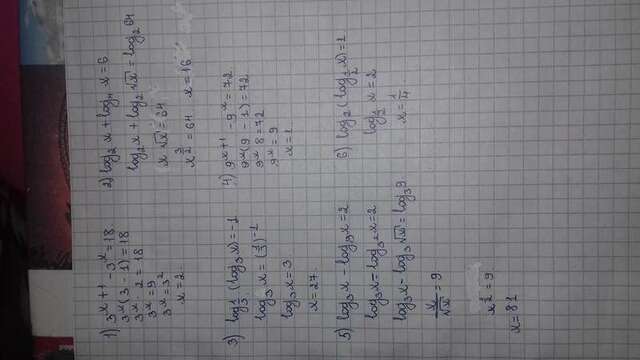 1) 3^(x+1) - 3^x = 18
3^x (3 - 1) = 18
3^x · 2 = 18
3^x = 9
3^x = 3^2
x = 2.
2) log_2 x + log_4 x = 6
log_2 x + log_2 √x = log_2 64
x √x = 64
x^(3/2) = 64 x = 16
3) log_(1/3) (log_3 x) = -1
log_3 x = (1/3)^(-1)
log_3 x = 3
x = 27.
4) 9^(x+1) - 9^x = 72
9^x (9 - 1) = 72
9^x 8 = 72
9^x = 9
x = 1
5) log_3 x - log_9 x = 2
log_3 x = log_(3^2) x = 2
log_3 x - log_3 √x = log_3 9
x/√x = 9
x^(1/2) = 9
x = 81
6) log_2 (log_(1/2) x) = 1
log_(1/2) x = 2
x = 1/4